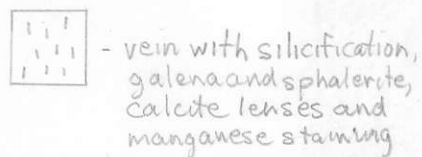 - vein with silicification,
galena and sphalerite,
calcite lenses and
manganese staining